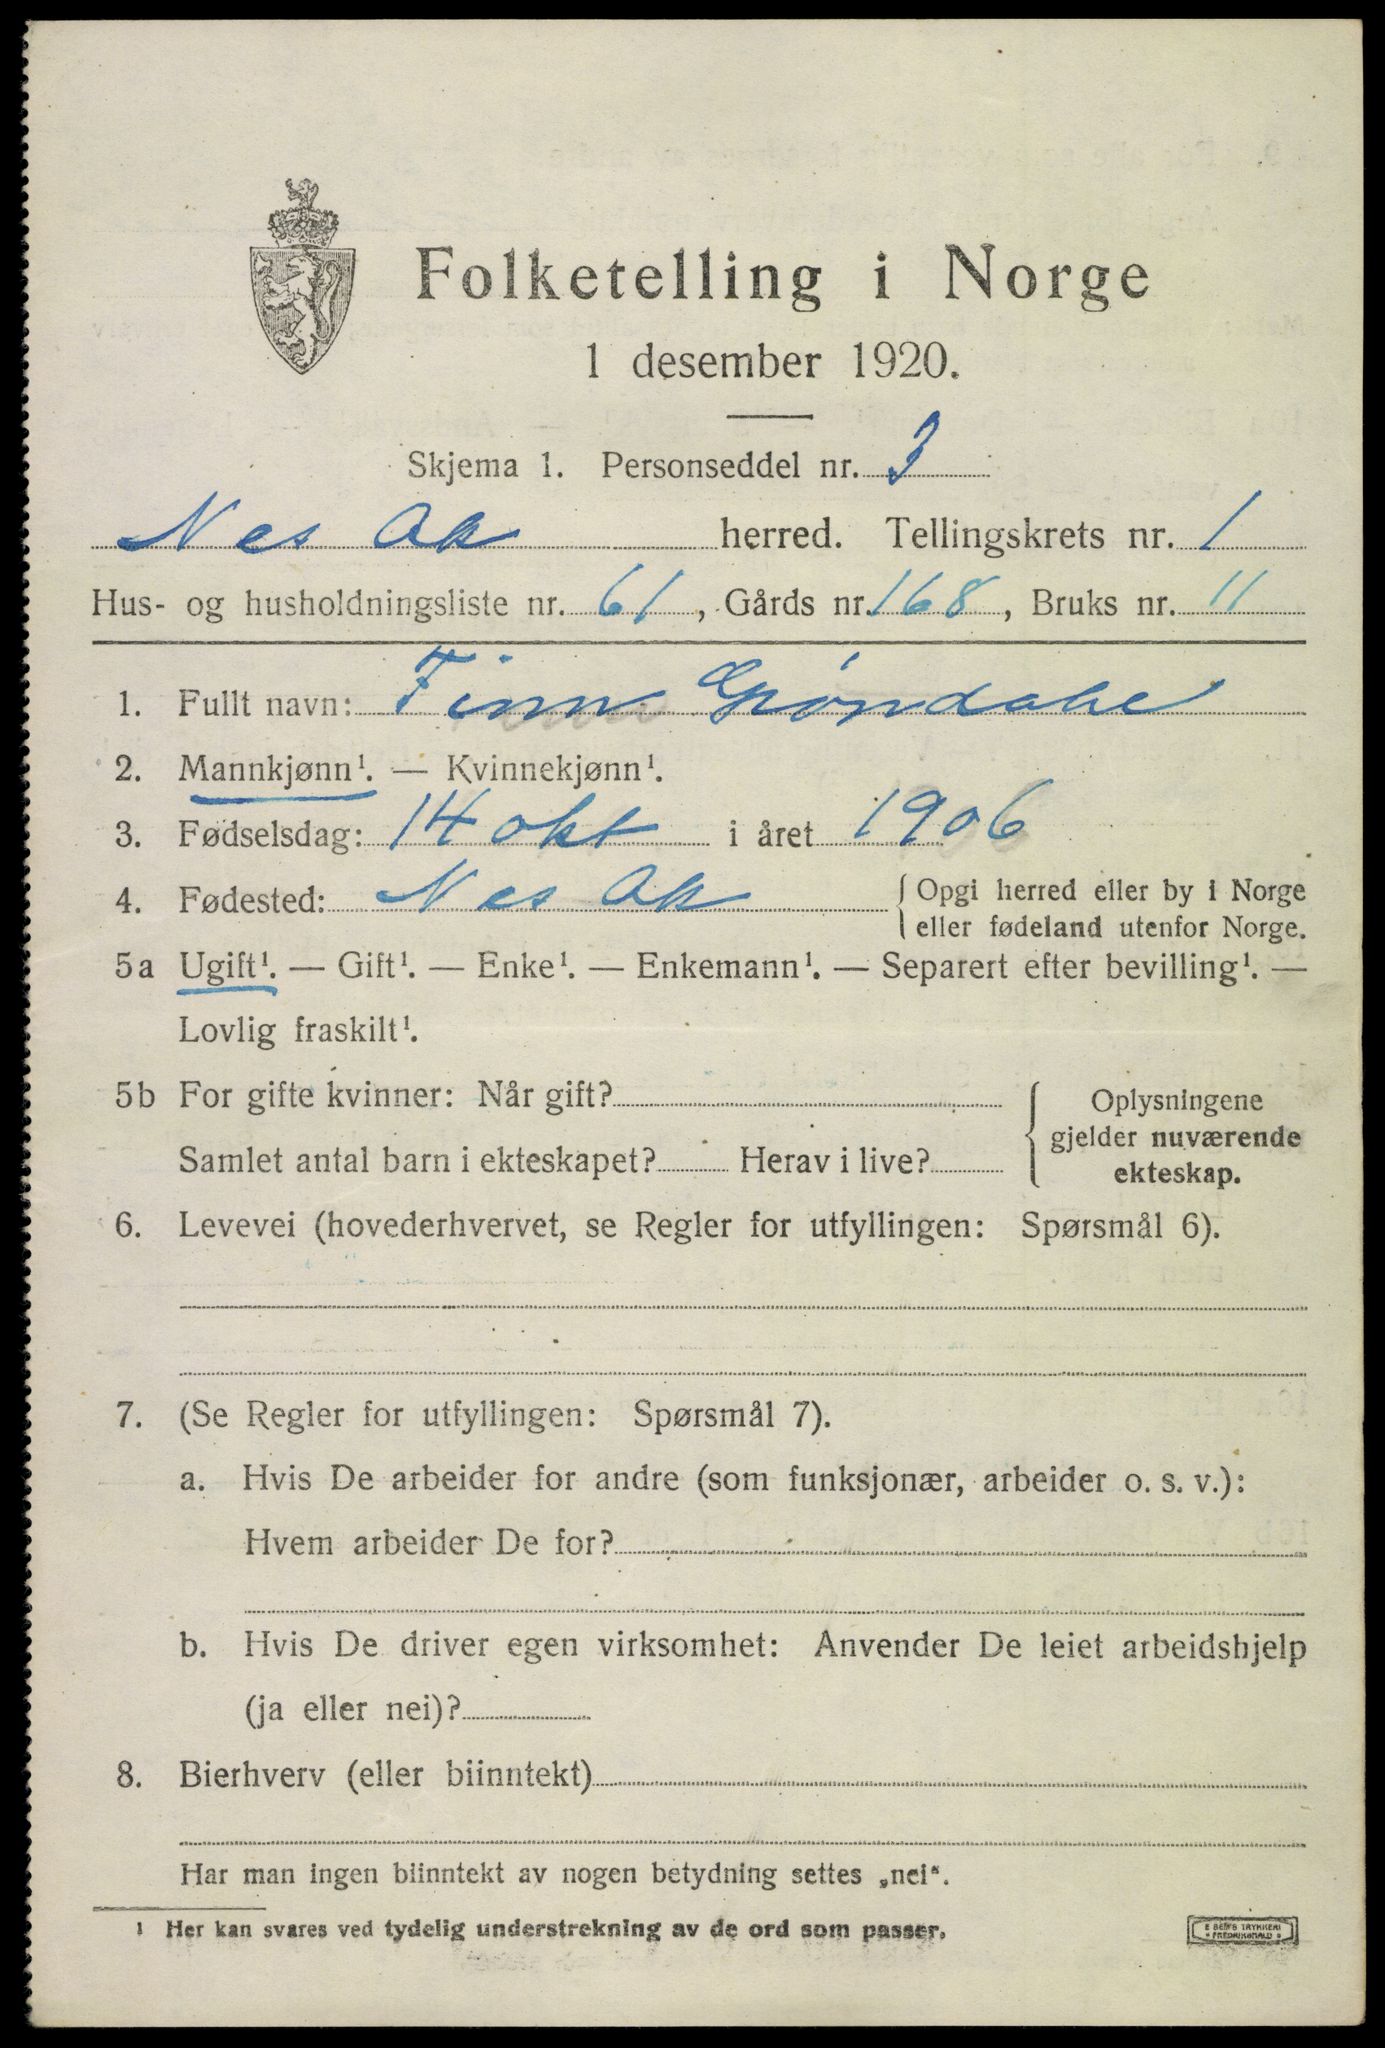 Folketelling i Norge
1 desember 1920.
Skjema 1. Personseddel nr. 3
Nes Ak herred. Tellingskrets nr. 1
Hus- og husholdningsliste nr. 61, Gårds nr. 168, Bruks nr. 11
1. Fullt navn: Finn Grøndahl
2. Mannkjønn¹. — Kvinnekjønn¹.
3. Fødselsdag: 14 okt i året 1906
4. Fødested: Nes Ak { Opgi herred eller by i Norge
eller fødeland utenfor Norge.
5a Ugift¹. — Gift¹. — Enke¹. — Enkemann¹. — Separert efter bevilling¹. —
Lovlig fraskilt¹.
5b For gifte kvinner: Når gift?
Samlet antal barn i ekteskapet? Herav i live?
{ Oplysningene
gjelder nuværende
ekteskap.
6. Levevei (hovederhvervet, se Regler for utfyllingen: Spørsmål 6).
7. (Se Regler for utfyllingen: Spørsmål 7).
a. Hvis De arbeider for andre (som funksjonær, arbeider o. s. v.):
Hvem arbeider De for?
b. Hvis De driver egen virksomhet: Anvender De leiet arbeidshjelp
(ja eller nei)?
8. Bierhverv (eller biinntekt)
Har man ingen biinntekt av nogen betydning settes „nei“.
¹ Her kan svares ved tydelig understrekning av de ord som passer.